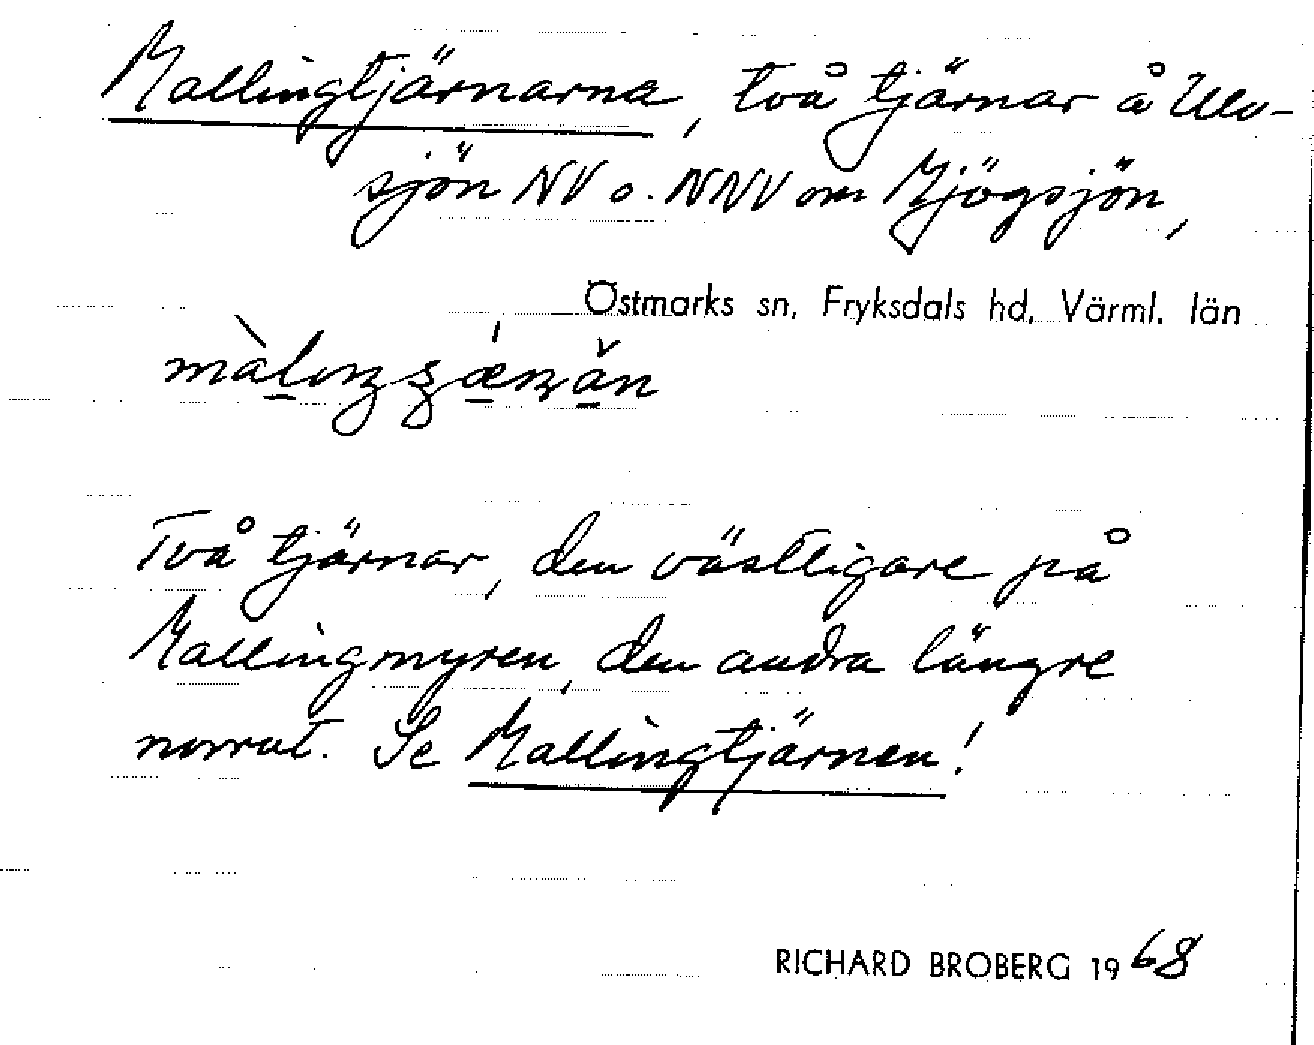 Mallingtjärnarna, två tjärnar å Ulv-
sjön NV o. NNV om Mjögsjön,
Östmarks sn, Fryksdals hd, Värml. län
Två tjärnar, den västligare på
Mallingmyren, den andra längre
norrut. Se Mallingtjärnen!
RICHARD BROBERG 1968